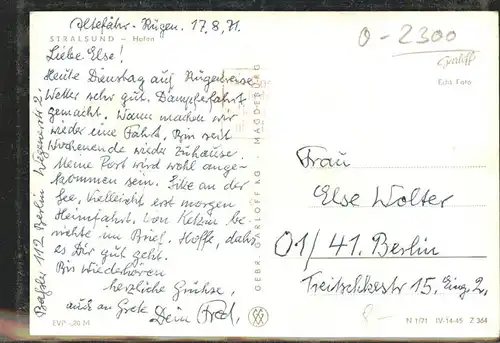 Altefähr-Rügen. 17.8.71.
STRALSUND – Hafen
Liebe Else!
Heute Dienstag auf Rügenreise.
Wetter sehr gut. Dampferfahrt
gemacht. Wann machen wir
wieder eine Fahrt. Bin seit
Wochenende wieder zuhause.
Meine Post wird wohl ange-
kommen sein. Eike an der
See, vielleicht erst morgen
Heimfahrt. Von Ketzin be-
richte im Brief. Hoffe, daß
es Dir gut geht.
Bis Wiederhören
herzliche Grüße,
auch an Grete Dein Fred.
112 Berlin Wegenerstr. 2.
EVP -,20 M
GEBR. GARLOFF KG · MAGDEBURG
0-2300
Garloff
Echt Foto
Frau
Else Wolter
01/41. Berlin
Treitschkestr 15, Eing. 2.
8-
N 1/71 IV-14-45 Z 364